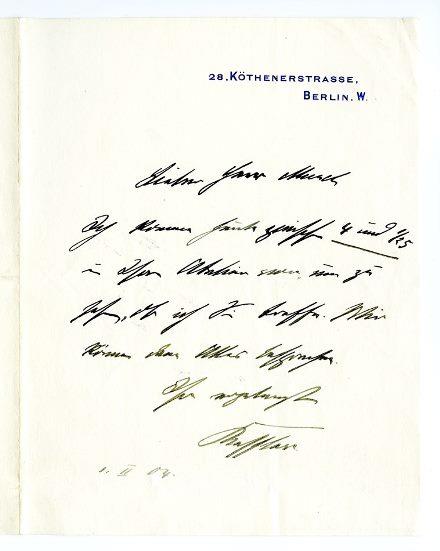 28, KÖTHENERSTRASSE,
BERLIN. W.
Lieber Herr Munch
Ich komme heute zwischen 4 und 1/25
in Ihr Atelier um zu
sehen, ob ich Sie treffe. Wir
können dann Alles besprechen.
Ihr ergebenster
Kessler
1. II 04.